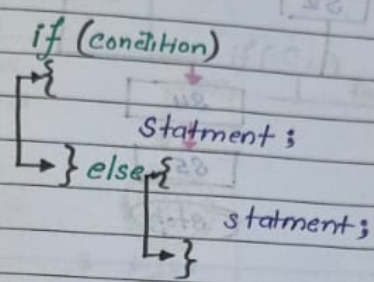 if (condition)
{
statment;
} else {
statment;
}